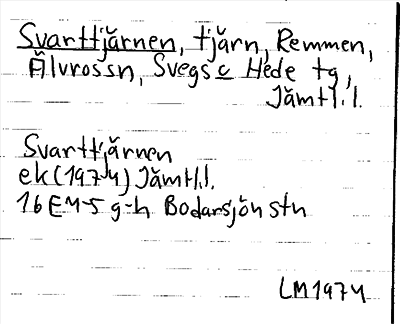 Svarttjärnen, tjärn, Remmen,
Älvrossn, Svegs o Hede tg,
Jämtl.l.
Svarttjärnen
ek (1974) Jämtl.l.
16E 4-5 g-h Bodarsjön stn
LM 1974